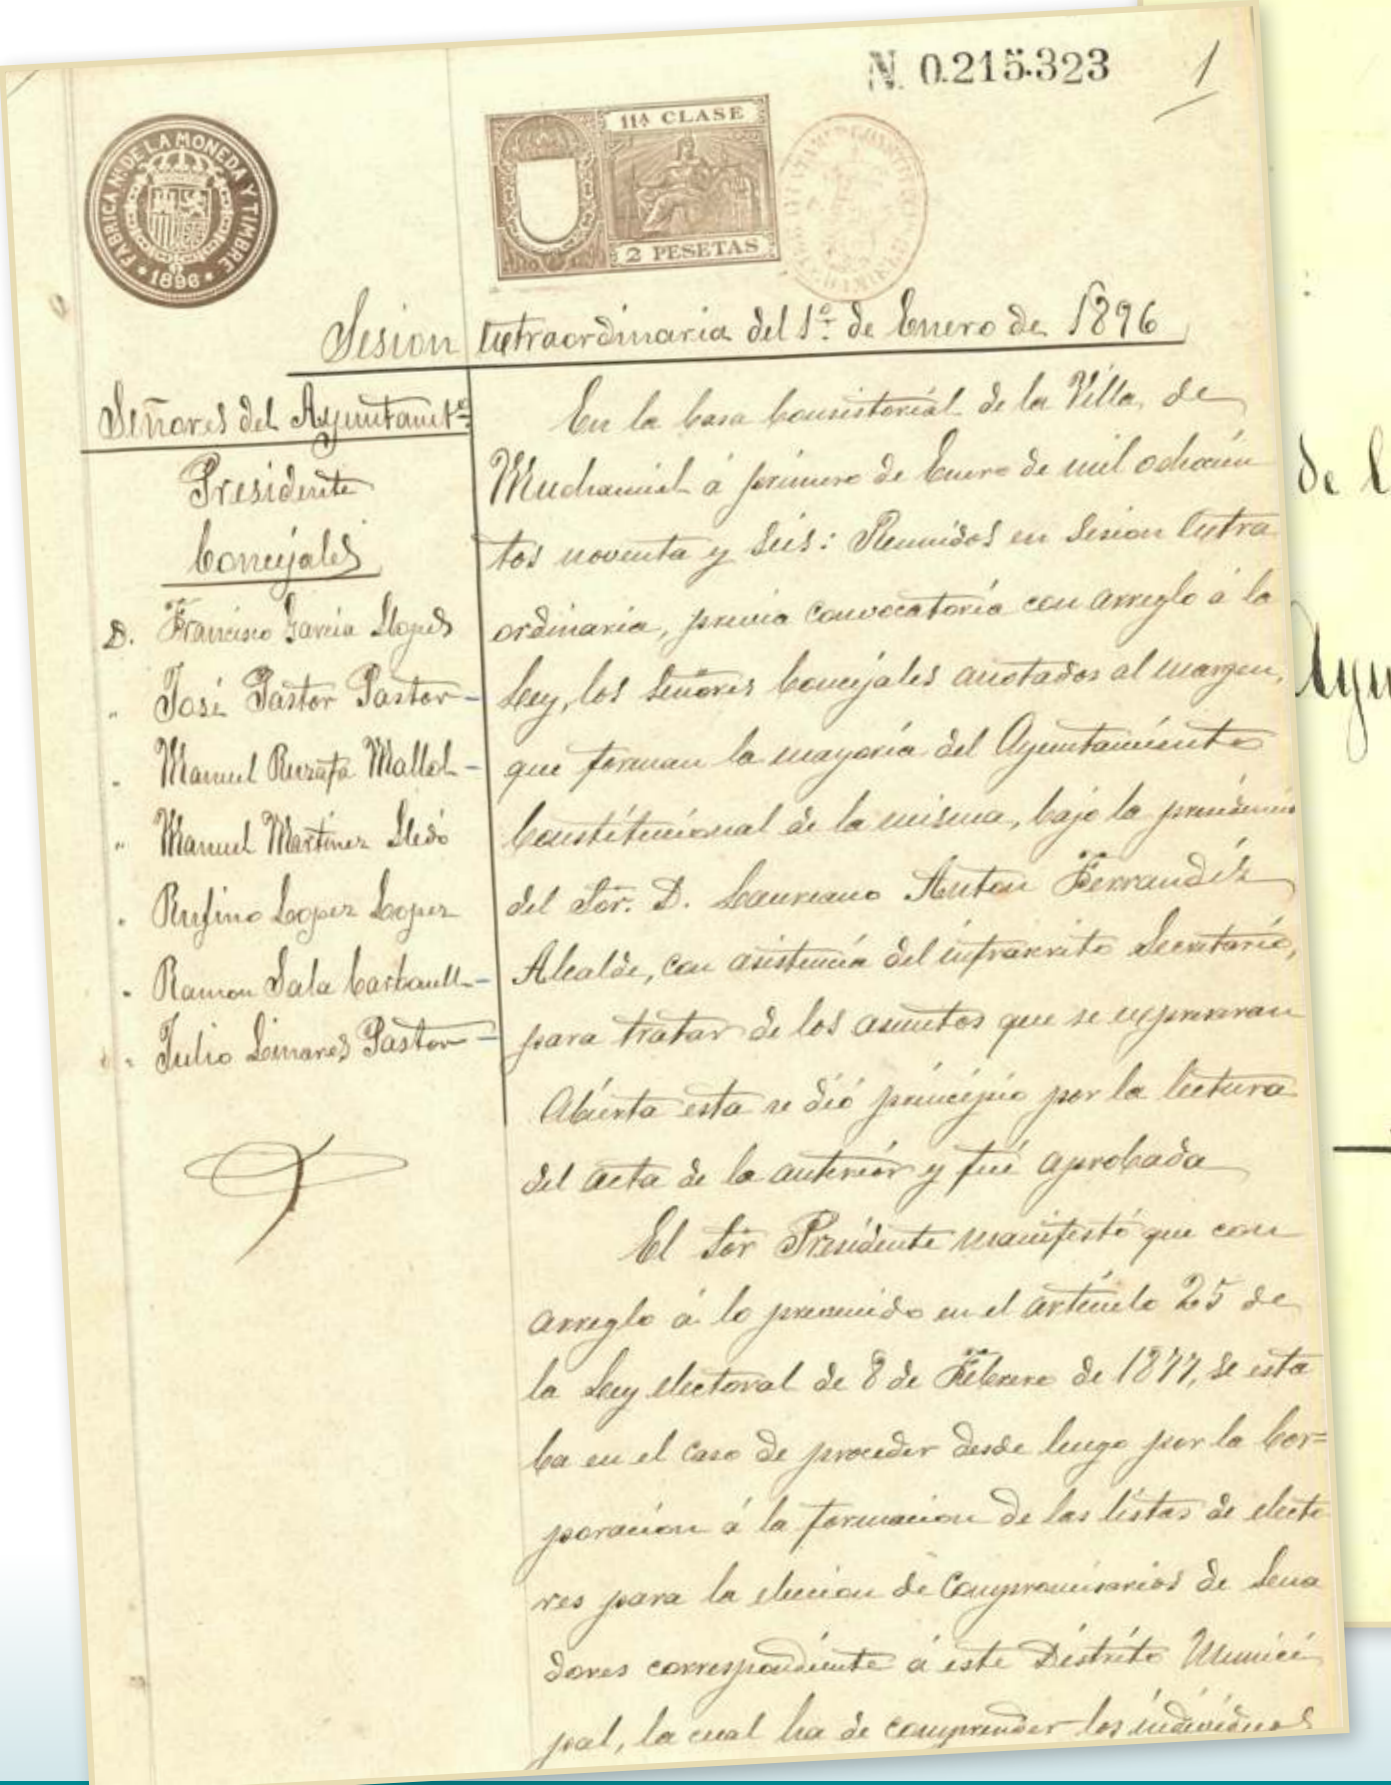 N. 0.215.323
1
FABRICA Nal DE LA MONEDA Y TIMBRE
1896
11ª CLASE
2 PESETAS
Sesion Extraordinaria del 1º de Enero de 1896
Señores del Ayuntamtº
Presidente
Concejales
D. Francisco Garcia Llopis
" José Pastor Pastor
" Manuel Ruzafa Mallol
" Manuel Martinez Lledó
" Rufino Lopez Lopez
" Ramon Sala Carbonell
" Julio Linares Pastor
En la Casa Consistorial de la Villa de
Muchamiel á primero de Enero de mil ochocien
tos noventa y seis: Reunidos en Sesion Extra
ordinaria, previa convocatoria con arreglo á la
Ley, los Señores Concejales anotados al margen,
que forman la mayoria del Ayuntamiento
Constitucional de la misma, bajo la presidencia
del Sor. D. Laureano Anton Ferrandiz
Alcalde, con asistencia del infrascrito Secretario,
para tratar de los asuntos que se expresaran
Abierta esta se dió principio por la lectura
del acta de la anterior y fué aprobada
El Sor Presidente manifestó que con
arreglo á lo prevenido en el articulo 25 de
la Ley electoral de 8 de Febrero de 1877, se esta
ba en el caso de proceder desde luego por la Cor=
poracion á la formacion de las listas de electo
res para la eleccion de Compromisarios de Sena
dores correspondiente á este Distrito Munici
pal, la cual ha de comprender los individuos
de l
Ayu